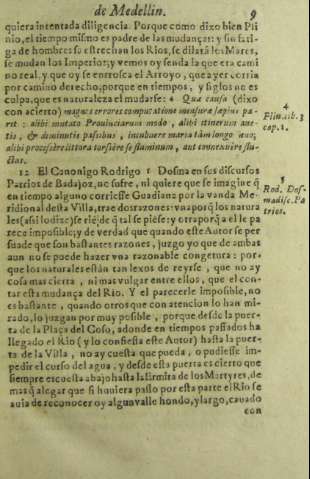 de Medellin. 9
quiera intentada diligencia. Porque como dixo bien Pli
nio, el tiempo mismo es padre de las mudanças: y sin fati-
ga de hombres se estrechan los Rios, se dilatã les Mares,
se mudan los Imperios; y vemos oy senda la que era cami
no real, y que oy se enrosca el Arroyo, que ayer corria
por camino derecho, porque en tiempos, y siglos no es
culpa, que es naturaleza el mudarse: 4 Que causa (dixo
con acierto) magnos errores computatione mensuræ sæpius pa-
ret: alibi mutato Provinciarum modo, alibi itinerum auc-
tis, & diminutis passibus, incubuere maria tàm longo ævo,
alibi processere littora torsère se fluminum, aut
fluctus.
4
Plin. lib. 3
cap. 2.
12 El Canonigo Rodrigo 5 Dosma en sus discursos
Patrios de Badajoz, no sufre, ni quiere que se imagine q̃
en tiempo alguno corriesse Guadiana por la vanda Me-
ridional desta Villa, trae dos razones: vna por q̃ los natura
les (assi lo dize) se rië de q̃ tal se piése: y otra por q̃ a el le pa
rece impossible; y de verdad que quando este Autor se per
suade que son bastantes razones, juzgo yo que de ambas
aun no se puede hazer vna razonable congetura: por-
que los naturales están tan lexos de reyrse, que no ay
cosa mas cierta, ni mas vulgar entre ellos, que el con-
tar esta mudança del Rio. Y el parecerle impossible, no
es bastante, quando otros que con atencion lo han mi-
rado, lo juzgan por muy possible, porque desde la puer-
ta de la Plaça del Coso, adonde en tiempos passados ha
llegado el Rio (y lo confiesta este Autor) hasta la puer-
ta de la Villa, no ay cuesta que pueda, o pudiesse im-
pedir el curso del agua, y desde esta puerta es cierto que
siempre es cuesta abajo hasta la Ermita de los Martyres, de
mas q̃ alegar que si huuiera passado por esta parte el Rio se
auia de reconocer oy algun valle hondo, y largo, cauado
con
5
Rod. Dos-
ma disc. Pa
trios.